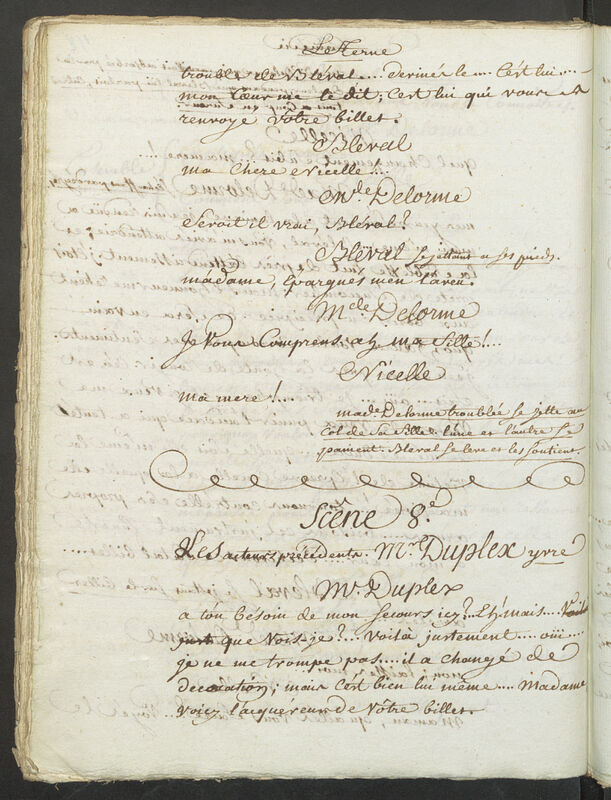 La Terne
trouble de Bléval.... derinés le ... C'est lui....
mon Cœur me le dit; C'est lui qui vous a
renvoyé Votre billet.
Bléval
ma chere Nicelle...
Mde Delorme
Seroit il vrai, Bléval?
Bléval se jettant a ses pieds.
madame, Epargnés m'en l'aveu.
Mde Delorme
Je Vous Comprens, ah ma fille!...
Nicelle
ma mere!...
made Delorme troublée se jette au
Col de Sa fille. l'une et l'autre se
pament. Bleval se leve et les soutient.
Scêne 8e.
Les acteurs précédents. Mr. Duplex yvre
Mr. Duplex
a t'on besoin de mon Secours icy?.. Eh! mais.... Voilà
just que Vois-je?.... Voilà justement.... oui....
je ne me trompe pas.... il a changé de
decoration; mais C'est bien lui même.... Madame
Voicy l'acquereur de Vôtre billet.